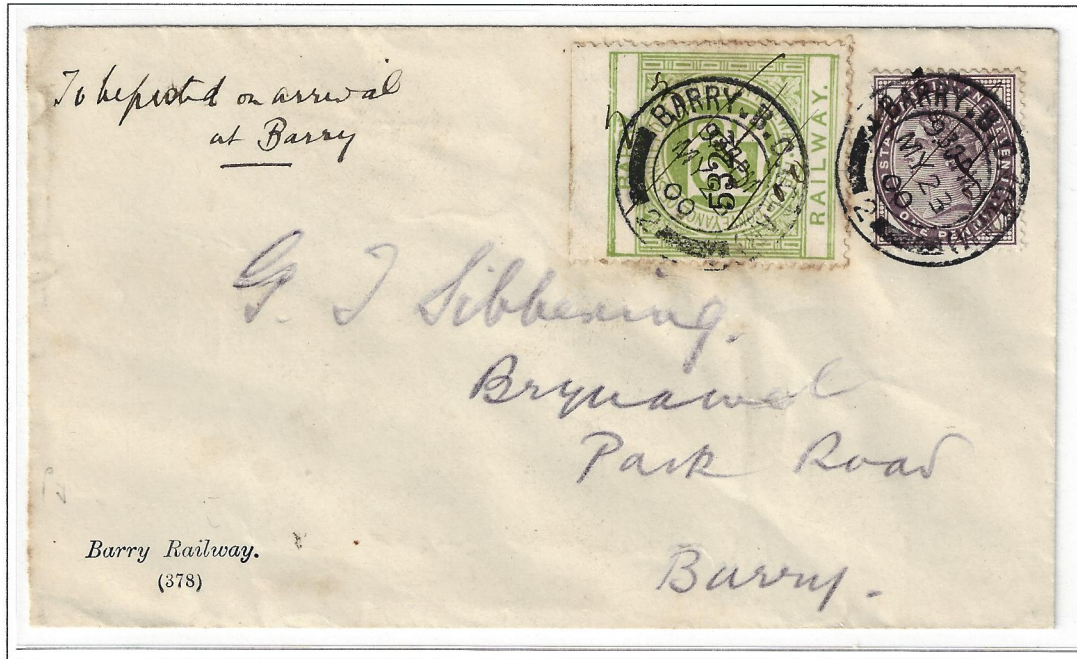 To be posted on arrival
at Barry
RAILWAY.
532
BARRY. B.O
MY 23
00
2
BARRY. B
MY 23
00
2
ONE PENNY
G. T Sibbering.
Brynawel
Park Road
Barry.
Barry Railway.
(378)